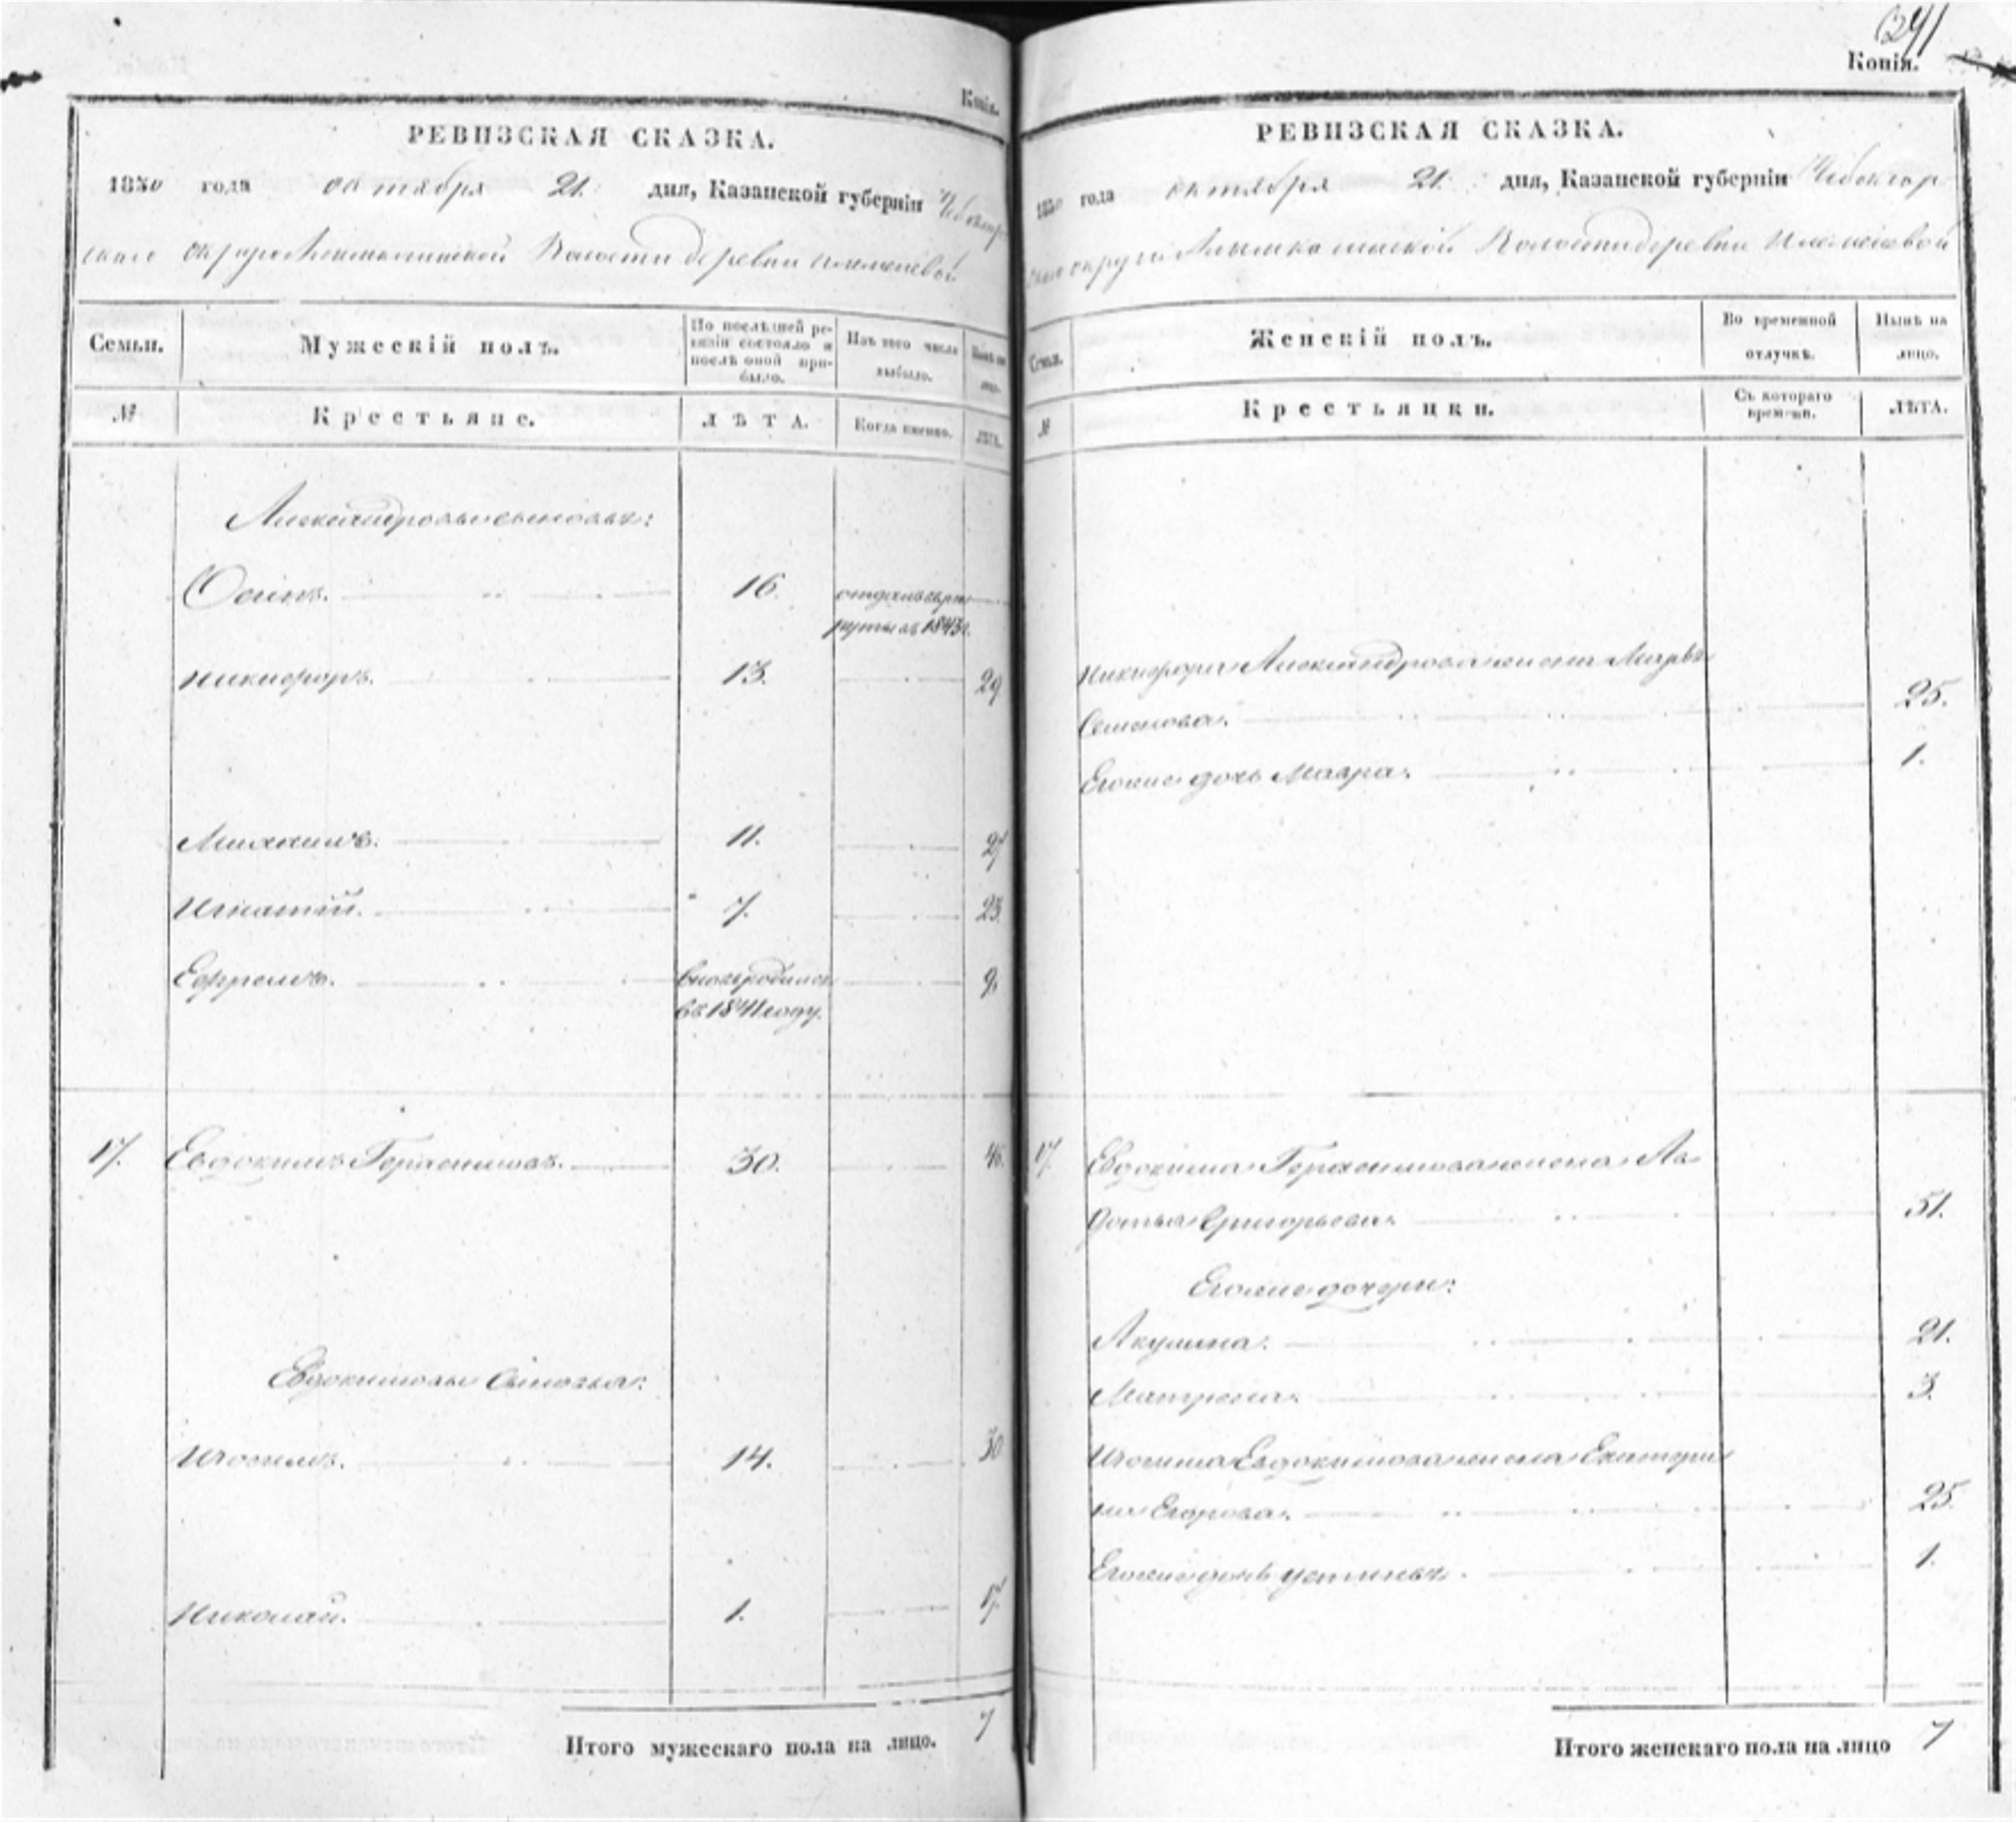 Копія.
РЕВИЗСКАЯ СКАЗКА.
1850 года октября 21. дня, Казанской губерніи Чебоксар
скаго округа Волости деревни
Семьи.
Мужескій полъ.
По послѣдней ре-
визіи состояло и
послѣ оной при-
было.
Изъ того числа
выбыло.
Нынѣ на
лицо.
№
Крестьяне.
ЛѢТА.
Когда именно.
ЛѢТА.
Александровы сыновья:
Осипъ. 16. отданъ въ рек
руты въ 1843г.
Никифоръ. 13. 29
Михаилъ. 11. 27
Игнатій. 7. 23.
Ефремъ. вновь родился 9.
въ 1841 году.
17. Евдокимъ Герасимовъ. 30. 46.
Евдокимовы Сыновья:
Изосимъ. 14. 30
Николай. 1. 17.
Итого мужескаго пола на лицо. 7
341
Копія.
РЕВИЗСКАЯ СКАЗКА.
1850 года октября 21. дня, Казанской губерніи Чебоксар
скаго округа Волости деревни
Семьи.
Женскій полъ.
Во временной
отлучкѣ.
Нынѣ на
лицо.
№
Крестьянки.
Съ котораго
времени.
ЛѢТА.
Никифора Александрова жена Марья
Семенова. 25.
Его же дочь Мавра. 1.
17. Евдокима Герасимова жена Ав
дотья Григорьева. 51.
Его же дочери:
Акулина. 21.
Матрена. 3.
Изосима Евдокимова жена Катери
на Егорова. 25.
Его же дочь Устинья. 1.
Итого женскаго пола на лицо 7